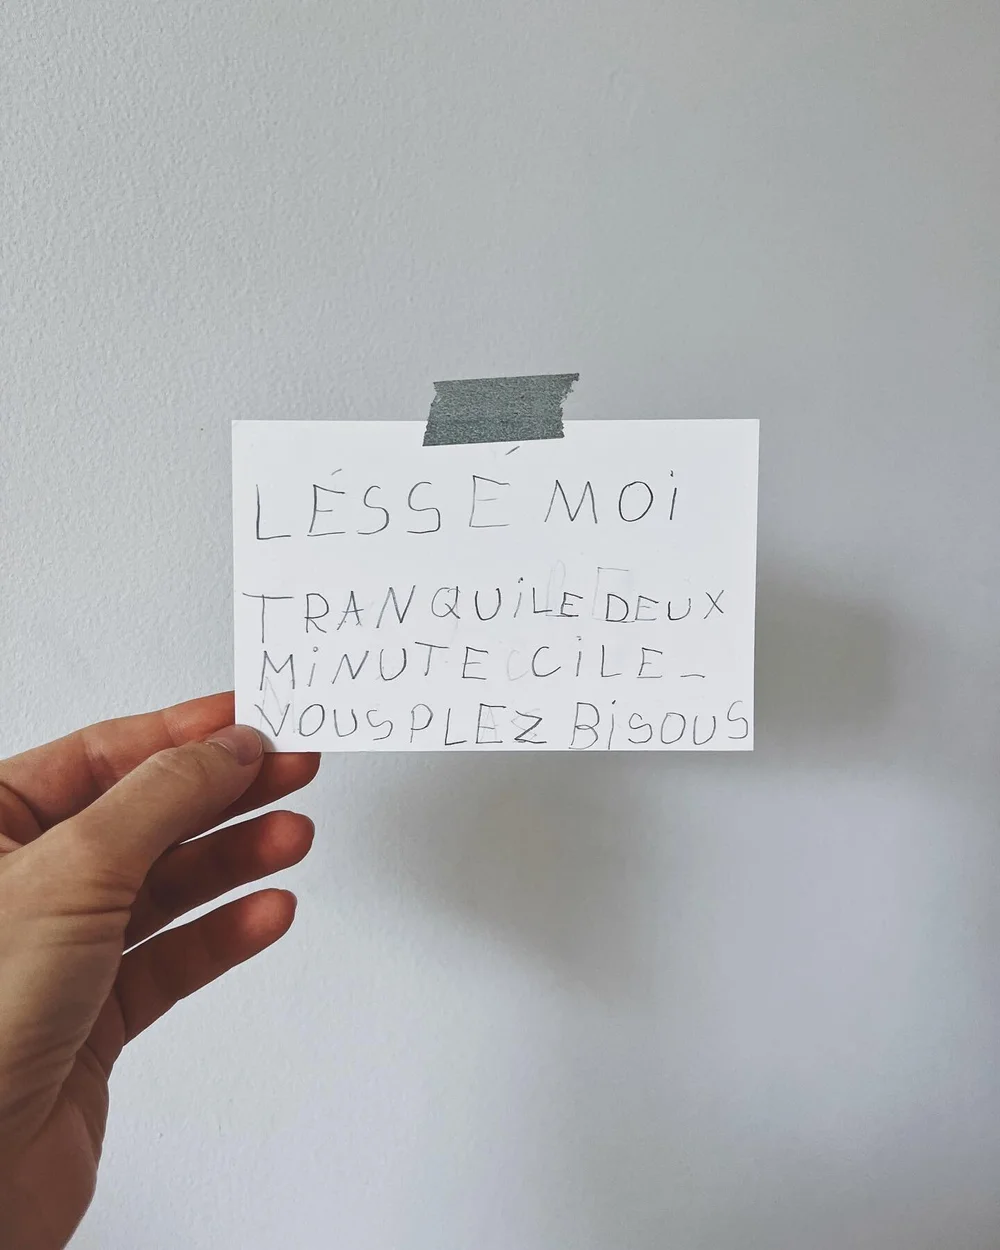 LÉSSÉ MOi
TRANQUiLE DEUX
MiNUTE CiLE_
VOUS PLEZ BiSOUS